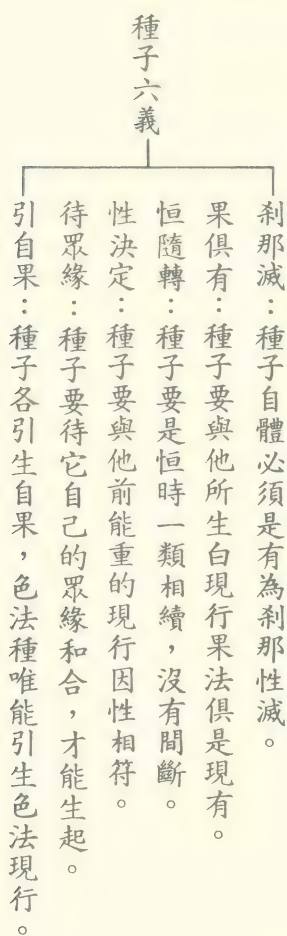 種子六義
剎那滅：種子自體必須是有為剎那性滅。
果俱有：種子要與他所生白現行果法俱是現有。
恒隨轉：種子要是恒時一類相續，沒有間斷。
性決定：種子要與他前能重的現行因性相符。
待眾緣：種子要待它自己的眾緣和合，才能生起。
引自果：種子各引生自果，色法種唯能引生色法現行。